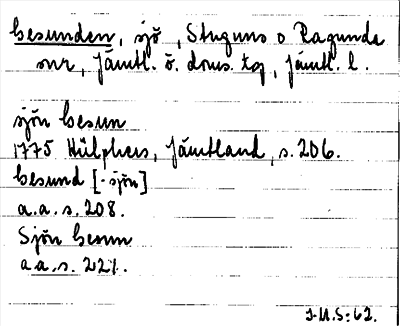 Gesunden, sjö, Stuguns o Ragunda
snr, Jämtl. ö. doms. tg, Jämtl. l.
sjön Gesun
1775 Hülphers, Jämtland, s. 206.
Gesund [-sjön]
a.a. s. 208.
Sjön Gesun
a.a. s. 221.
J.U.S:62.